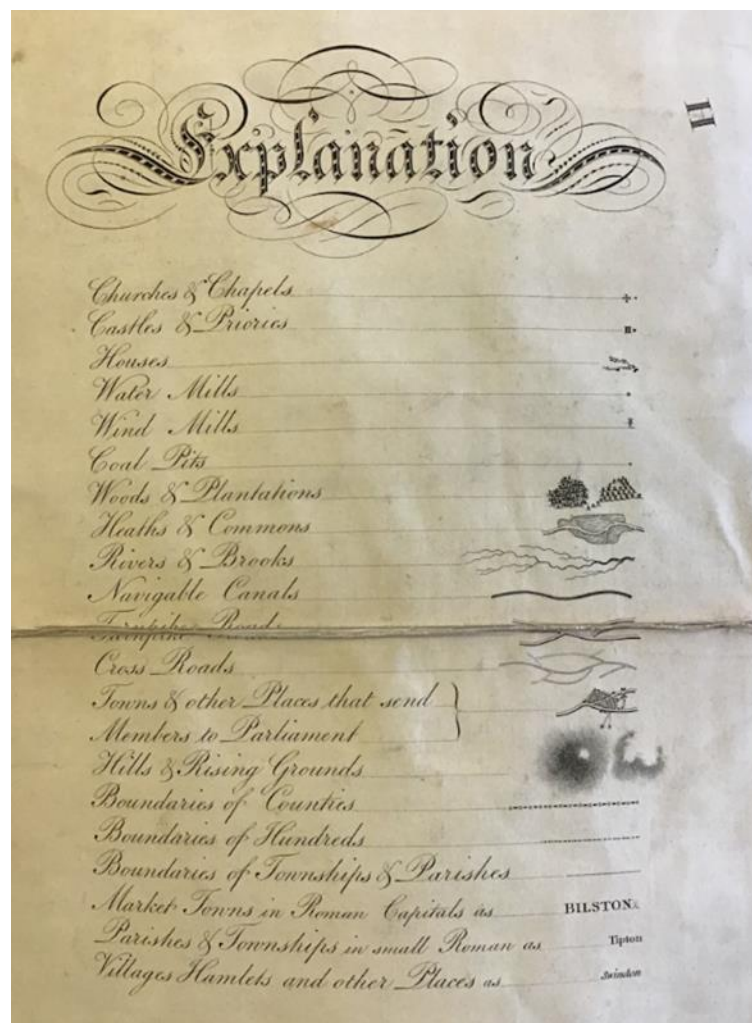 H
Explanation
Churches & Chapels
Castles & Priories
Houses
Water Mills
Wind Mills
Coal Pits
Woods & Plantations
Heaths & Commons
Rivers & Brooks
Navigable Canals
Turnpike Roads
Cross Roads
Towns & other Places that send
Members to Parliament
Hills & Rising Grounds
Boundaries of Counties
Boundaries of Hundreds
Boundaries of Townships & Parishes
Market Towns in Roman Capitals as BILSTON
Parishes & Townships in small Roman as Tipton
Villages Hamlets and other Places as Swindon